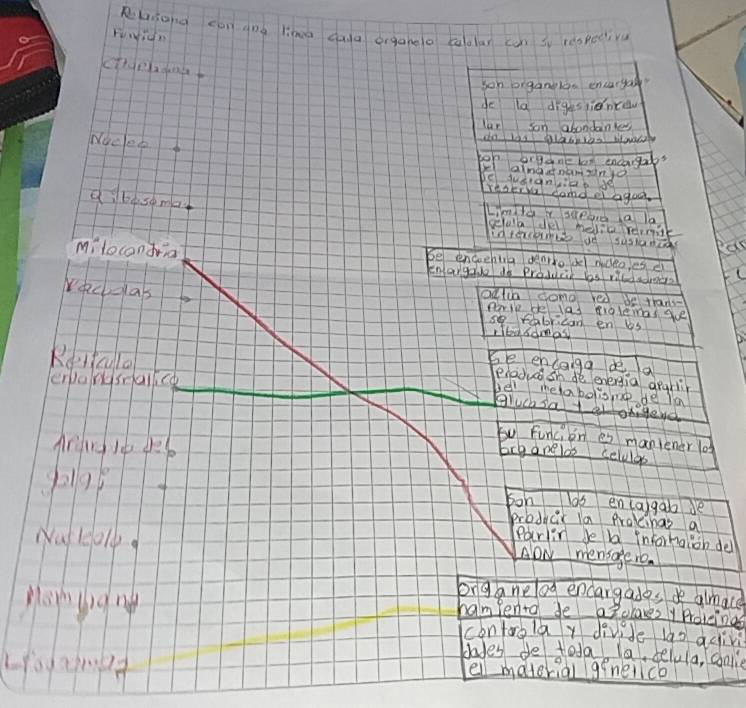 Relaciona con una linea cada organelo celular con su respectiva
Función
Citoplasma
Nucleo
Ribosoma
Mitocondria
Vacuolas
Reticulo
endoplasmatico
Aparato de
golgi
Nucleolo
Membrana
Lisosomas
son organelos encargados
de la digestión celu
lar son abondantes
en los globulos blancos
son organelos encargados
el almacenamiento
de sustancias de
reserva como el agua.
Limita y separa a la
celula del medio permite
intercambio de sustancias
Se encuentra dentro del nucleo es el
encargado de producir los ribosomas
actua como red de trans-
porte de las proteinas que
se fabrican en los
ribosomas
Se encarga de la
producción de energia apartir
del metabolismo de la
glucosa y el oxigeno
Su Función es mantener los
organelos celulas
Son los encargab de
producir la proteinas a
Partir de la información del
ADN mensagero.
organelos encargados de almace
namiento de azolares y Proteinas
controla y divide las activi
dades de toda la celula, contie
el material genetico